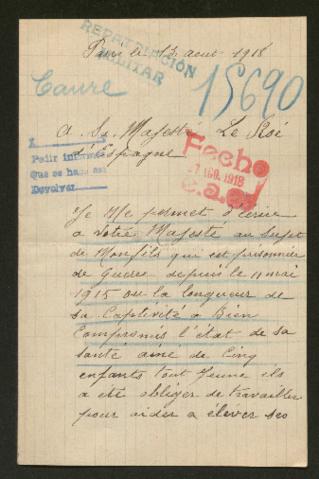 Paris le 13 aout 1918
REPATRIACIÓN
MILITAR
15690
A Sa Majesté Le Roé
d'Espagne
Fecho
AGO. 1918
Pedir informes
Que se haga así
Devolver
Je Me permet d'écrire
a Votre Majesté au Sujet
de Monfils qui est prisonnier
de Guerre depuis le 11 mai
1915 ou la longueur de
sa Captivité a Bien
Compromis l'état de sa
santé ainé de Cinq
enfants tout Jeune ils
a été obliger de travailler
pour aider a élever ses